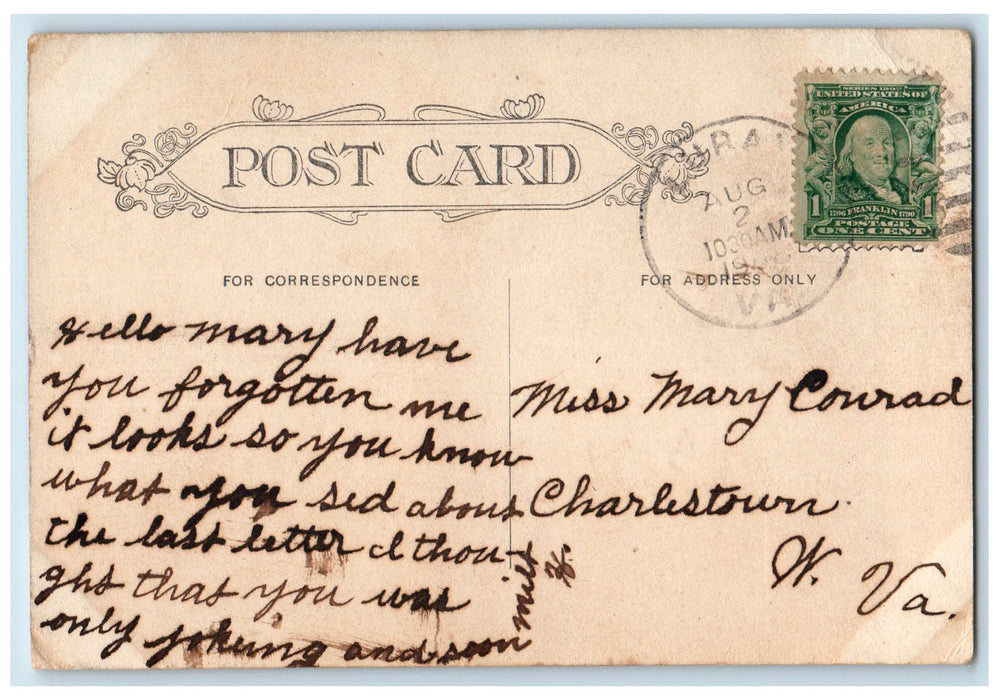 POST CARD
AUG
2
1030AM
VA
SERIES 1902
UNITED STATES OF
AMERICA
1 1706 FRANKLIN 1790 1
POSTAGE
ONE CENT
FOR CORRESPONDENCE
FOR ADDRESS ONLY
Hello mary have
you forgotten me
it looks so you know
what you sed about
the last letter I thou-
ghs that you was
only jokeing and soon
milt
H.
Miss Mary Conrad
Charlestown.
W. Va.